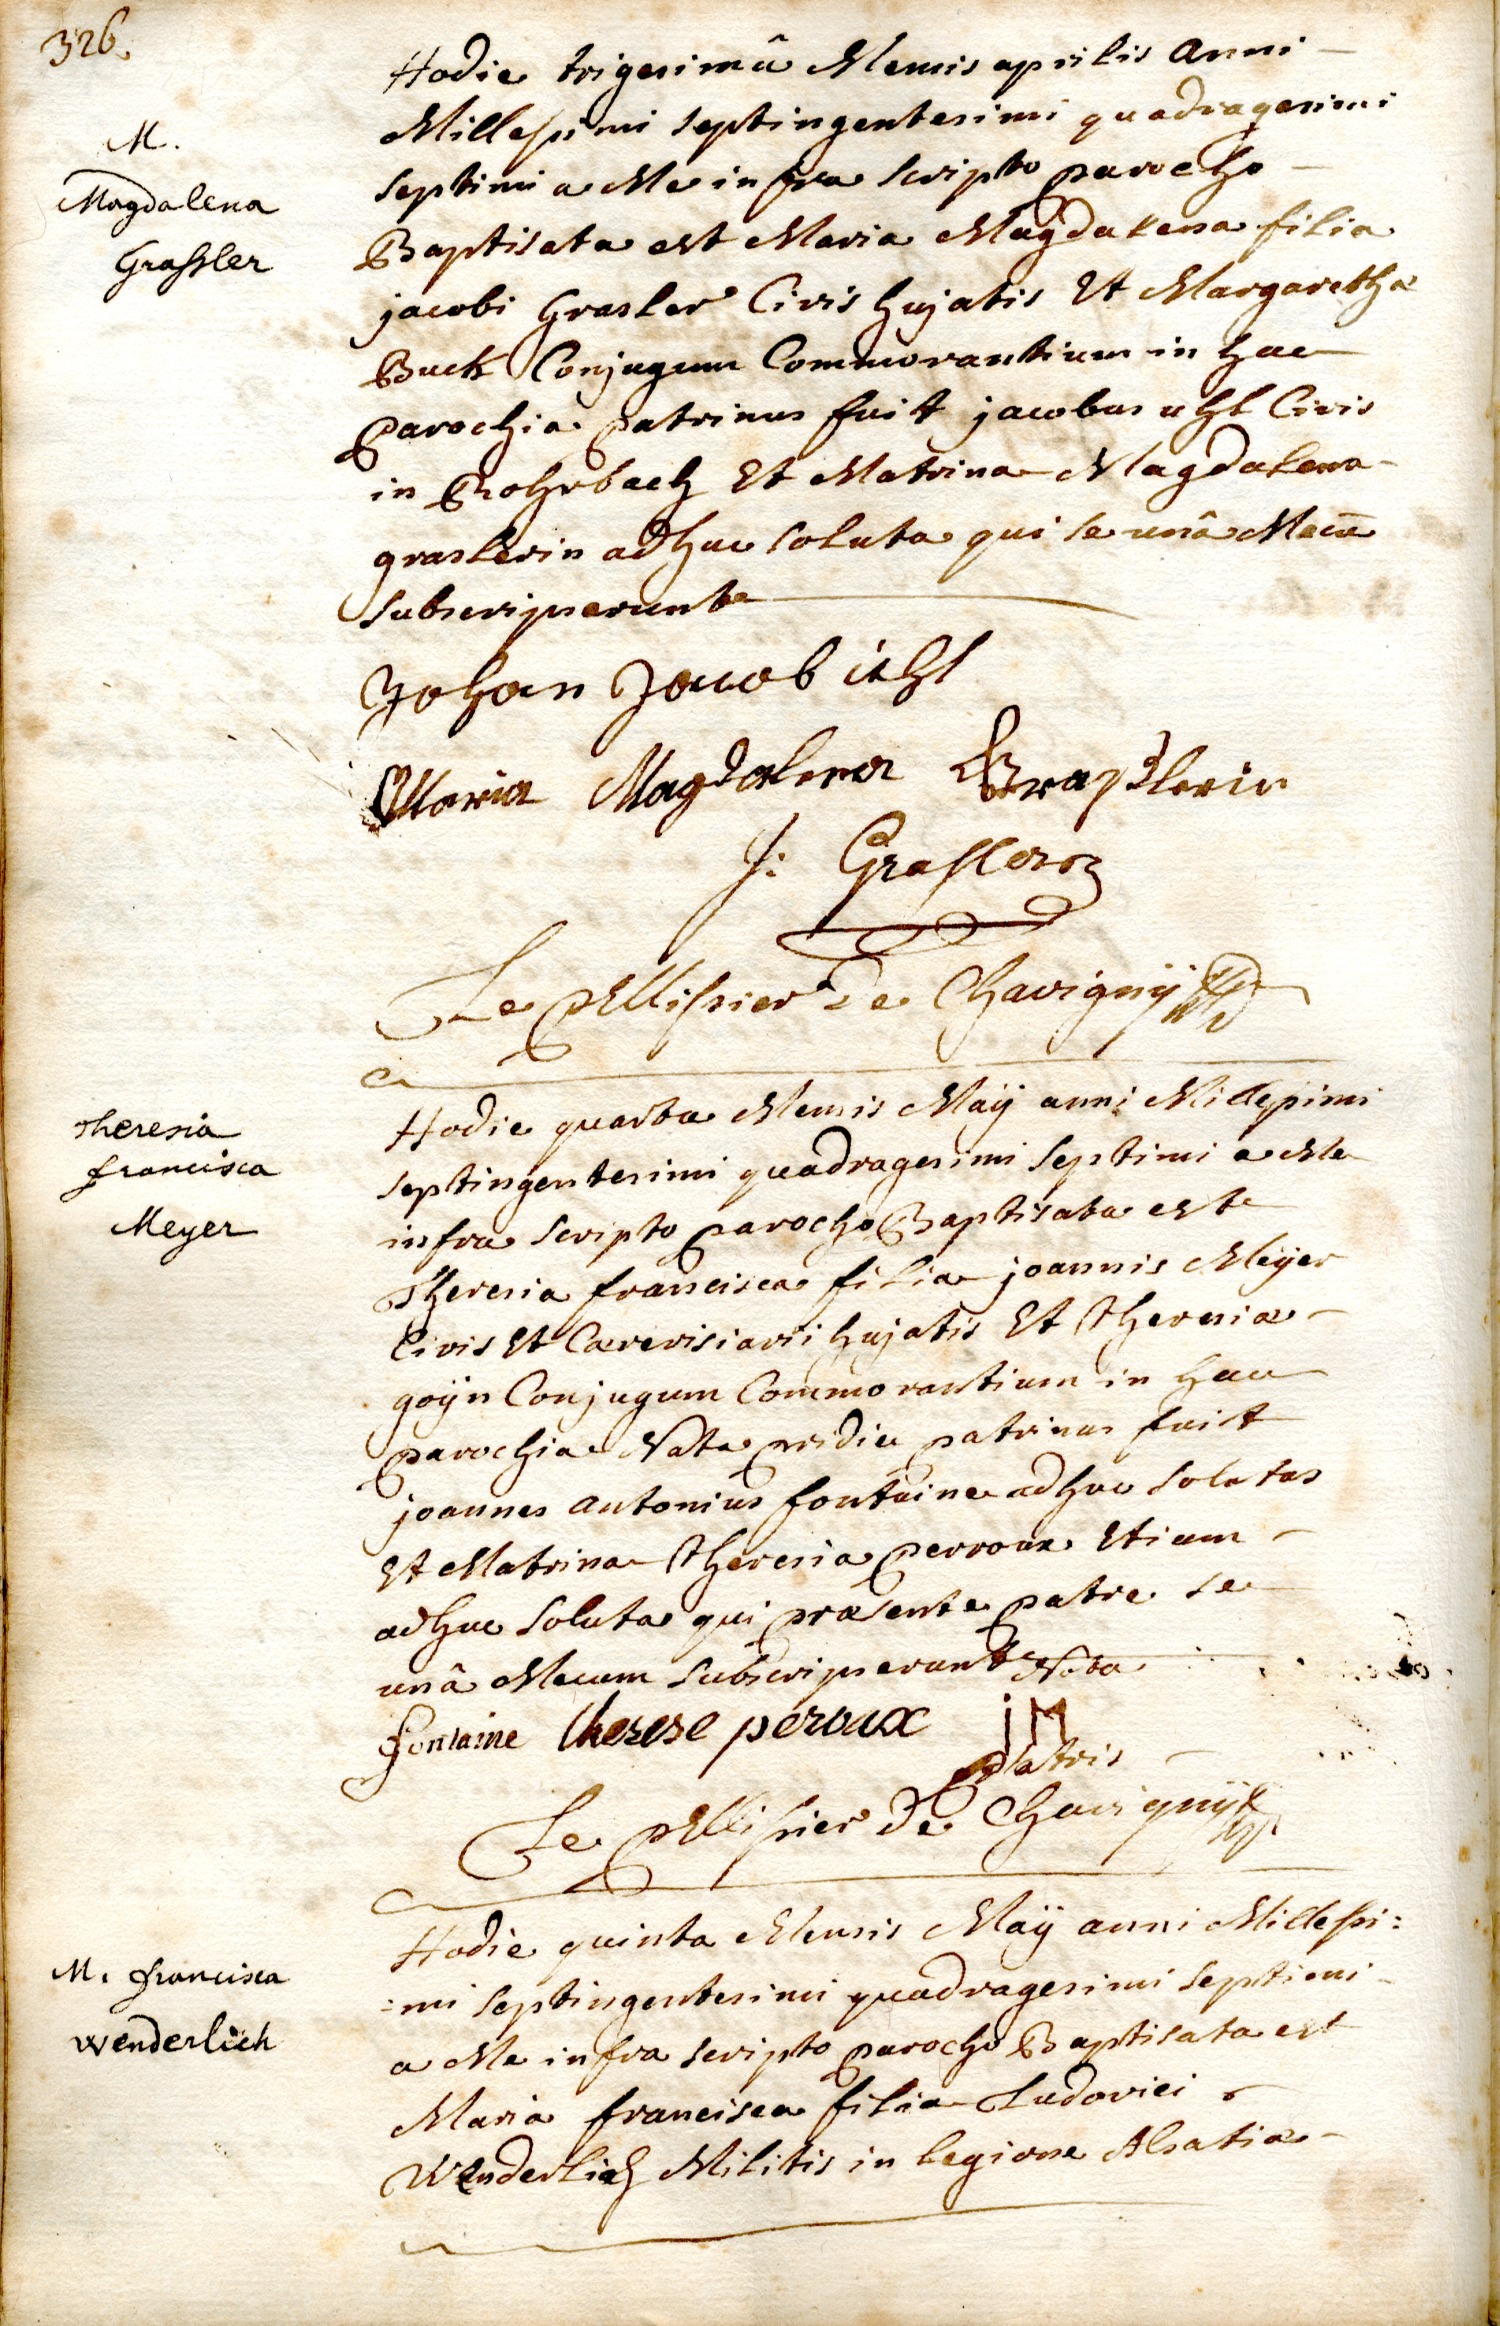 326.
M.
Magdalena
Grassler
Hodie trigesimâ Mensis aprilis Anni
Millesimi septingentesimi quadragesimi
septimi a Me infra scripto parocho
Baptisata est Maria Magdalena filia
jacobi Grasler Civis hujatis Et Margaretha
Buck Conjugum Commorantium in hac
parochia patrinus fuit jacobus uhl Civis
in Rohrbach Et Matrina Magdalena
graslerin adhuc soluta qui se unâ Mecū
subscripserunt
Johan Jacob uhl
Maria Magdalena Grasslerin
J: Grassler
Le pEllissier De Chavignÿ
Theresia
francisca
Meyer
Hodie quarta Mensis Maÿ anni Millesimi
septingentesimi quadragesimi septimi a Me
infra scripto parocho Baptisata est
Theresia francisca filia joannis Meÿer
Civis Et Cærevisiarii hujatis Et Theresiæ
goÿn Conjugum Commorantium in hac
parochia Nata pridie patrinus fuit
joannes antonius fontaine adhuc solutus
Et Matrina Theresia perroux Etiam
adhuc soluta qui præsente patre se
unâ Mecum subscripserunt Nota
fontaine therese peroux iM
patris
Le pEllissier De Chavignÿ
M. francisca
Wenderlich
Hodie quinta Mensis Maÿ anni Millesi:
:mi septingentesimi quadragesimi septimi
a Me infra scripto parocho Baptisata est
Maria francisca filia Ludovici
Wenderlich Militis in legione Alsatiæ